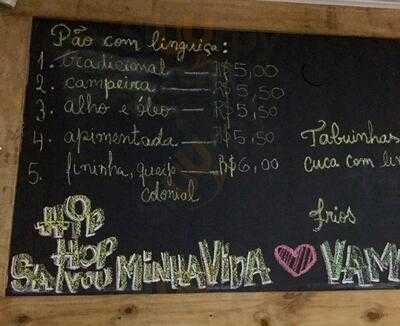 Pão com linguiça:
1. tradicional — R$ 5,00
2. campeira — R$ 5,50
3. alho e óleo — R$ 5,50
4. apimentada — R$ 5,50
5. fininha, queijo — R$ 6,00
colonial
Tabuinhas
cuca com lin
frios
#Hip
Hop
SALVOU MINHA VIDA ♥ VAM